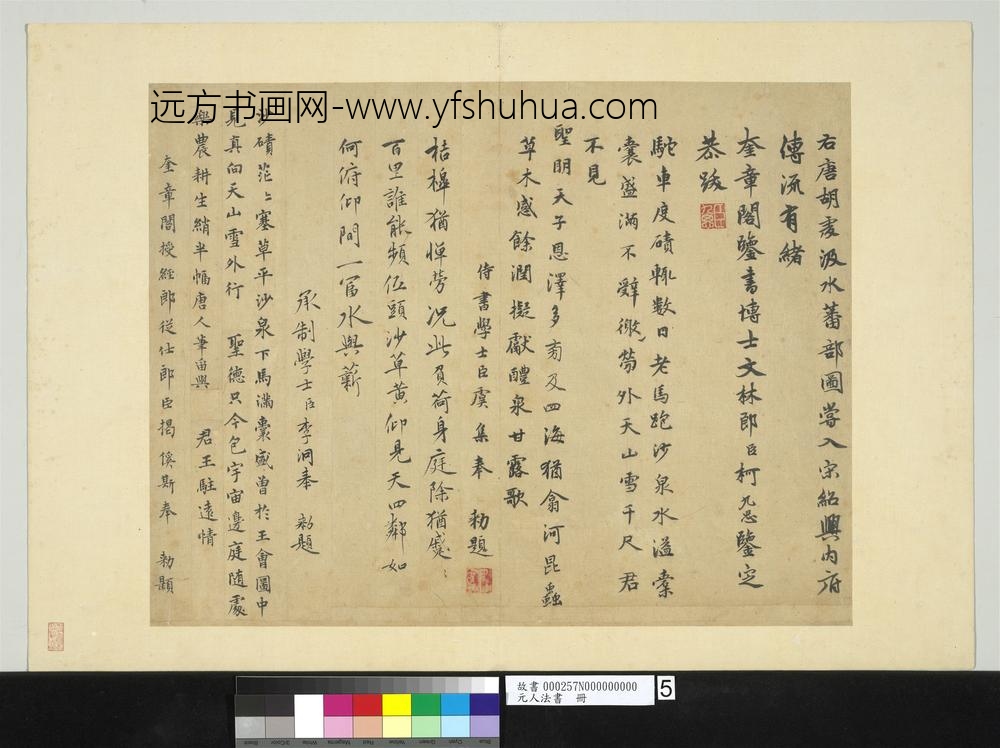 远方书画网-www.yfshuhua.com
右唐胡虔汲水蕃部圖嘗入宋紹興內府
傳流有緒
奎章閣鑒書博士文林郎臣柯九思鑒定
恭跋
駝車度磧輒數日老馬跑沙泉水溢橐
囊盛滿不辭微勞外天山雪千尺君
不見
聖明天子恩澤多旁及四海猶翕河昆蟲
草木感餘潤擬獻醴泉甘露歌
侍書學士臣虞集奉 勑題
桔橰猶憚勞況此負荷身庭除猶蹙〻
百里誰能頻低頭沙草黃仰見天四鄰如
何俯仰間一富水與薪
承制學士臣李泂奉 勑題
沙磧茫〻塞草平沙泉下馬滿囊盛曾於王會圖中
見真向天山雪外行 聖德只今包宇宙邊庭隨處
樂農耕生綃半幅唐人筆留與 君王駐遠情
奎章閣授經郎從仕郎臣揭傒斯奉 勑題
故書 000257N000000000
元人法書 冊
5